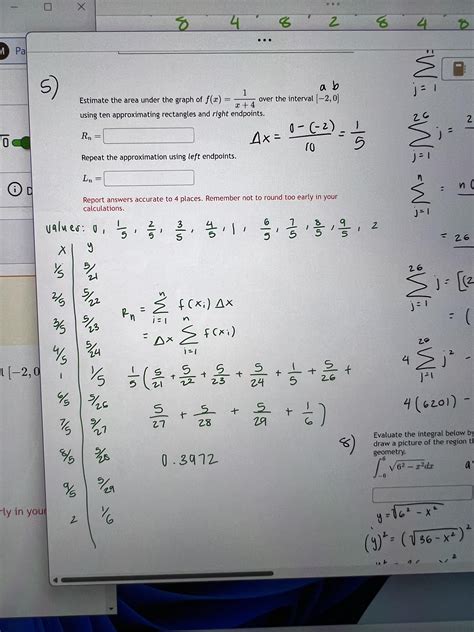 8 4 8 2 8 4 8
Pa
5)
a b
Estimate the area under the graph of f(x) = 1/(x + 4) over the interval [−2, 0]
using ten approximating rectangles and right endpoints.
R_n =
Δx = (0 − (−2))/10 = 1/5
Repeat the approximation using left endpoints.
L_n =
Report answers accurate to 4 places. Remember not to round too early in your
calculations.
values: 0, 1/5, 2/5, 3/5, 4/5, 1, 6/5, 7/5, 8/5, 9/5, 2
x y
1/5 5/21
2/5 5/22
3/5 5/23
4/5 5/24
1 1/5
6/5 5/26
7/5 5/27
8/5 5/28
9/5 5/29
2 1/6
R_n = n Σ i=1 f(x_i) Δx
= Δx n Σ i=1 f(x_i)
1/5 (5/21 + 5/22 + 5/23 + 5/24 + 1/5 + 5/26 +
5/27 + 5/28 + 5/29 + 1/6)
0.3972
[−2, 0
rly in your
Σ j=1
26 Σ j=1 j = 2
n Σ j=1 = n(
= 26
26 Σ j=1 j = [(2
= (
4 26 Σ j=1 j² −
4(6201) −
8)
Evaluate the integral below by
draw a picture of the region t
geometry.
∫_{−6}^{6} √(6² − x²)dx
y = √(6² − x²)
(y)² = (√(36 − x²))²